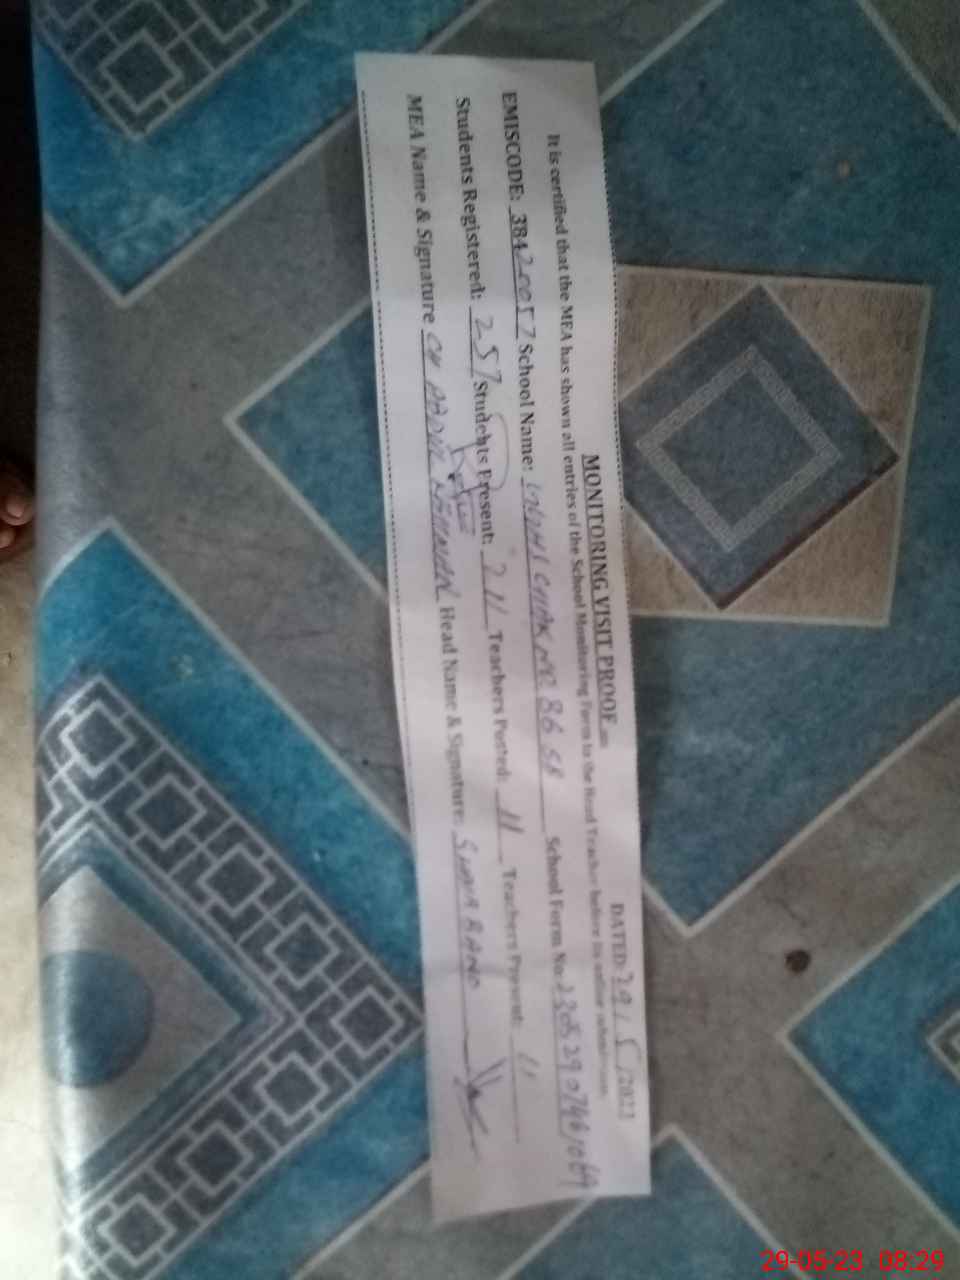 MONITORING VISIT PROOF
DATED: 29/5/2023
It is certified that the MEA has shown all entries of the School Monitoring Form to the Head Teacher before its online submission.
EMISCODE: 38420057 School Name: CHAK NO 86 SB School Form No: 2305290746
Students Registered: 257 Students Present: 211 Teachers Posted: 11 Teachers Present: 11
MEA Name & Signature CH Head Name & Signature: BANO
29-05-23 08:29